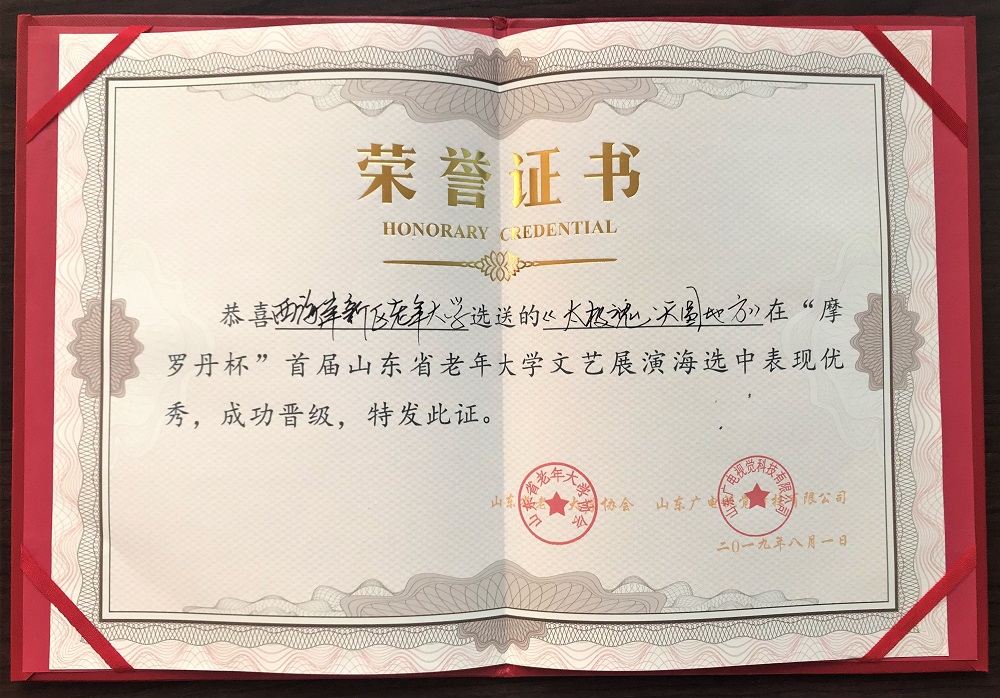 荣誉证书
HONORARY CREDENTIAL
恭喜西海岸新区老年大学选送的《太极魂·天圆地方》在“摩
罗丹杯”首届山东省老年大学文艺展演海选中表现优
秀，成功晋级，特发此证。
山东省老年大学协会 山东广电视觉科技有限公司
山东省老年大学协会
山东广电视觉科技有限公司
二0一九年八月一日